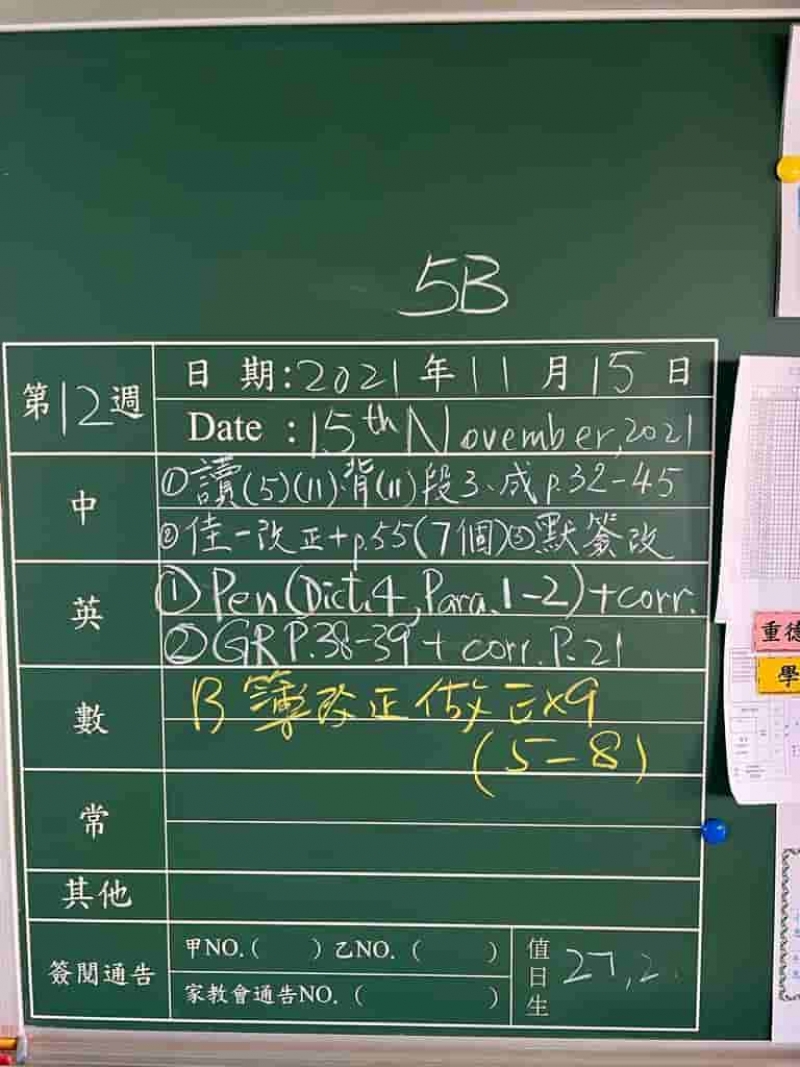 5B
第12週
日 期:2021年11月15日
Date :15th November,2021
中
①讀(5)(11)背(11)段3、成p.32-45
②佳一改正+p.55(7個)③默簽改
英
①Pen(Dict.4,Para.1-2)+corr.
②GRP.38-39+corr.P.21
數
B簿改正做Ex9
(5-8)
常
其他
簽閱通告
甲NO.( )乙NO.( )
家教會通告NO.( )
值日生
27,2
重德
學